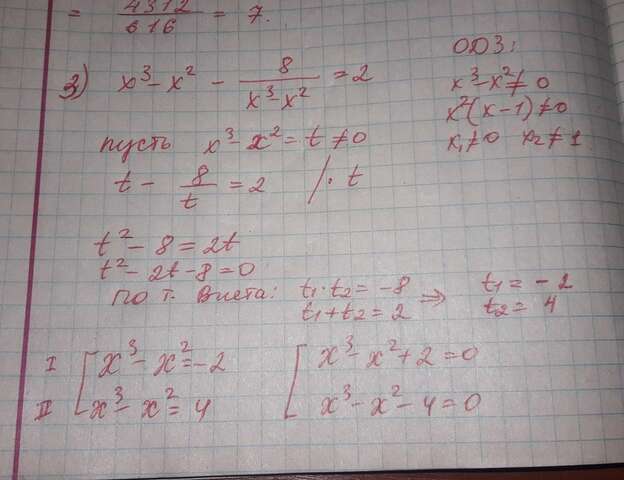 = 4312/616 = 7.
3) x³ - x² - 8/(x³ - x²) = 2
ОДЗ:
x³ - x² ≠ 0
x²(x - 1) ≠ 0
x₁ ≠ 0 x₂ ≠ 1
пусть x³ - x² = t ≠ 0
t - 8/t = 2 /· t
t² - 8 = 2t
t² - 2t - 8 = 0
по т. Виета: t₁·t₂ = -8 ⇒ t₁ = -2
t₁ + t₂ = 2 t₂ = 4
I [ x³ - x² = -2 [ x³ - x² + 2 = 0
II x³ - x² = 4 x³ - x² - 4 = 0